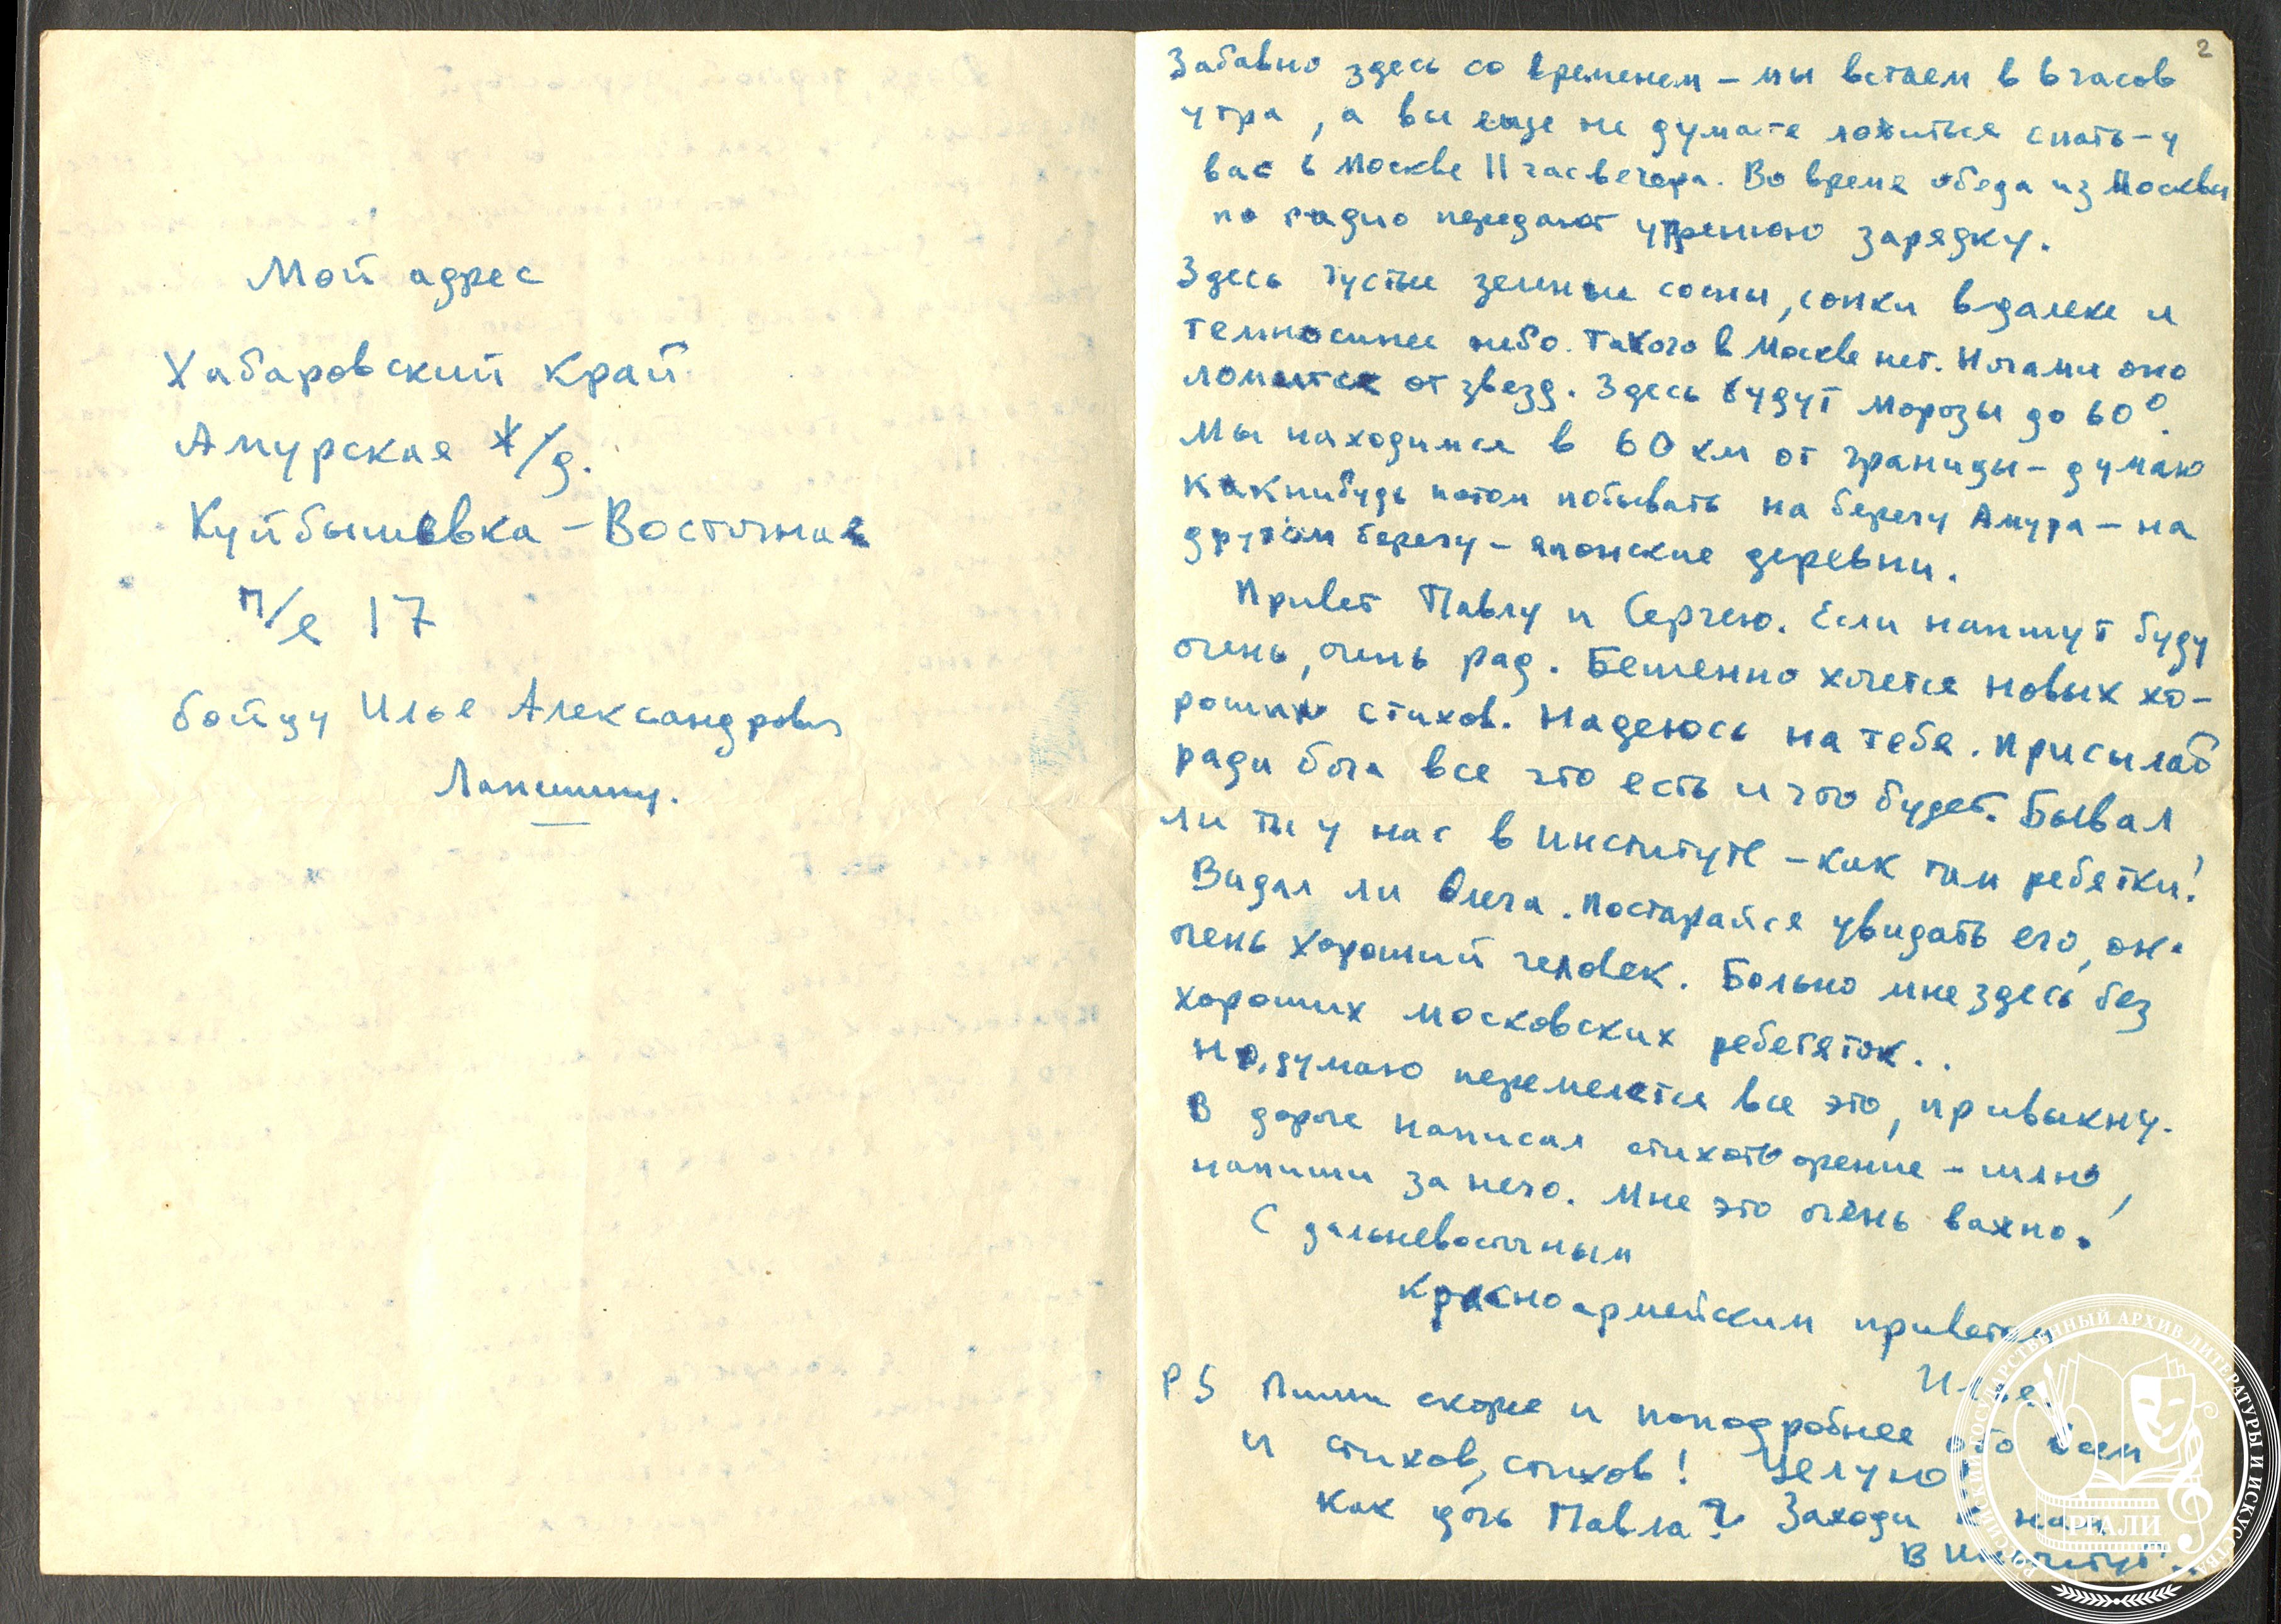 Мой адрес
Хабаровский край
Амурская ж/д.
Куйбышевка – Восточная
п/я 17
бойцу Илье Александрович
Лапшину.
2
Забавно здесь со временем – мы встаем в 6 часов
утра, а вы еще не думаете ложиться спать – у
вас в Москве 11 час вечера. Во время обеда из Москвы
по радио передают утреннюю зарядку.
Здесь густые зеленые сосны, сопки вдалеке и
темносинее небо. Такого в Москве нет. Ночами оно
ломится от звезд. Здесь будут морозы до 60°.
Мы находимся в 60 км от границы – думаю
какнибудь потом побывать на берегу Амура – на
другом берегу – японские деревни.
Привет Павлу и Сергею. Если напишут буду
очень, очень рад. Бешенно хочется новых хо-
роших стихов. Надеюсь на тебя. Присылай
ради бога все что есть и что будет. Бывал
ли ты у нас в институте – как там ребятки!
Видал ли Олега. Постарайся увидать его, он
очень хороший человек. Больно мне здесь без
хороших московских ребетяток..
Но, думаю перемелется все это, привыкну.
В дороге написал стихотворение – шлю,
напиши за него. Мне это очень важно!
С дальневосточным
красноармейским приветом
Илья.
PS Пиши скорее и поподробнее обо всем
и стихов, стихов! Целую.
Как дочь Павла? Заходи к нам
в институт..
РОССИЙСКИЙ ГОСУДАРСТВЕННЫЙ АРХИВ ЛИТЕРАТУРЫ И ИСКУССТВА
РГАЛИ